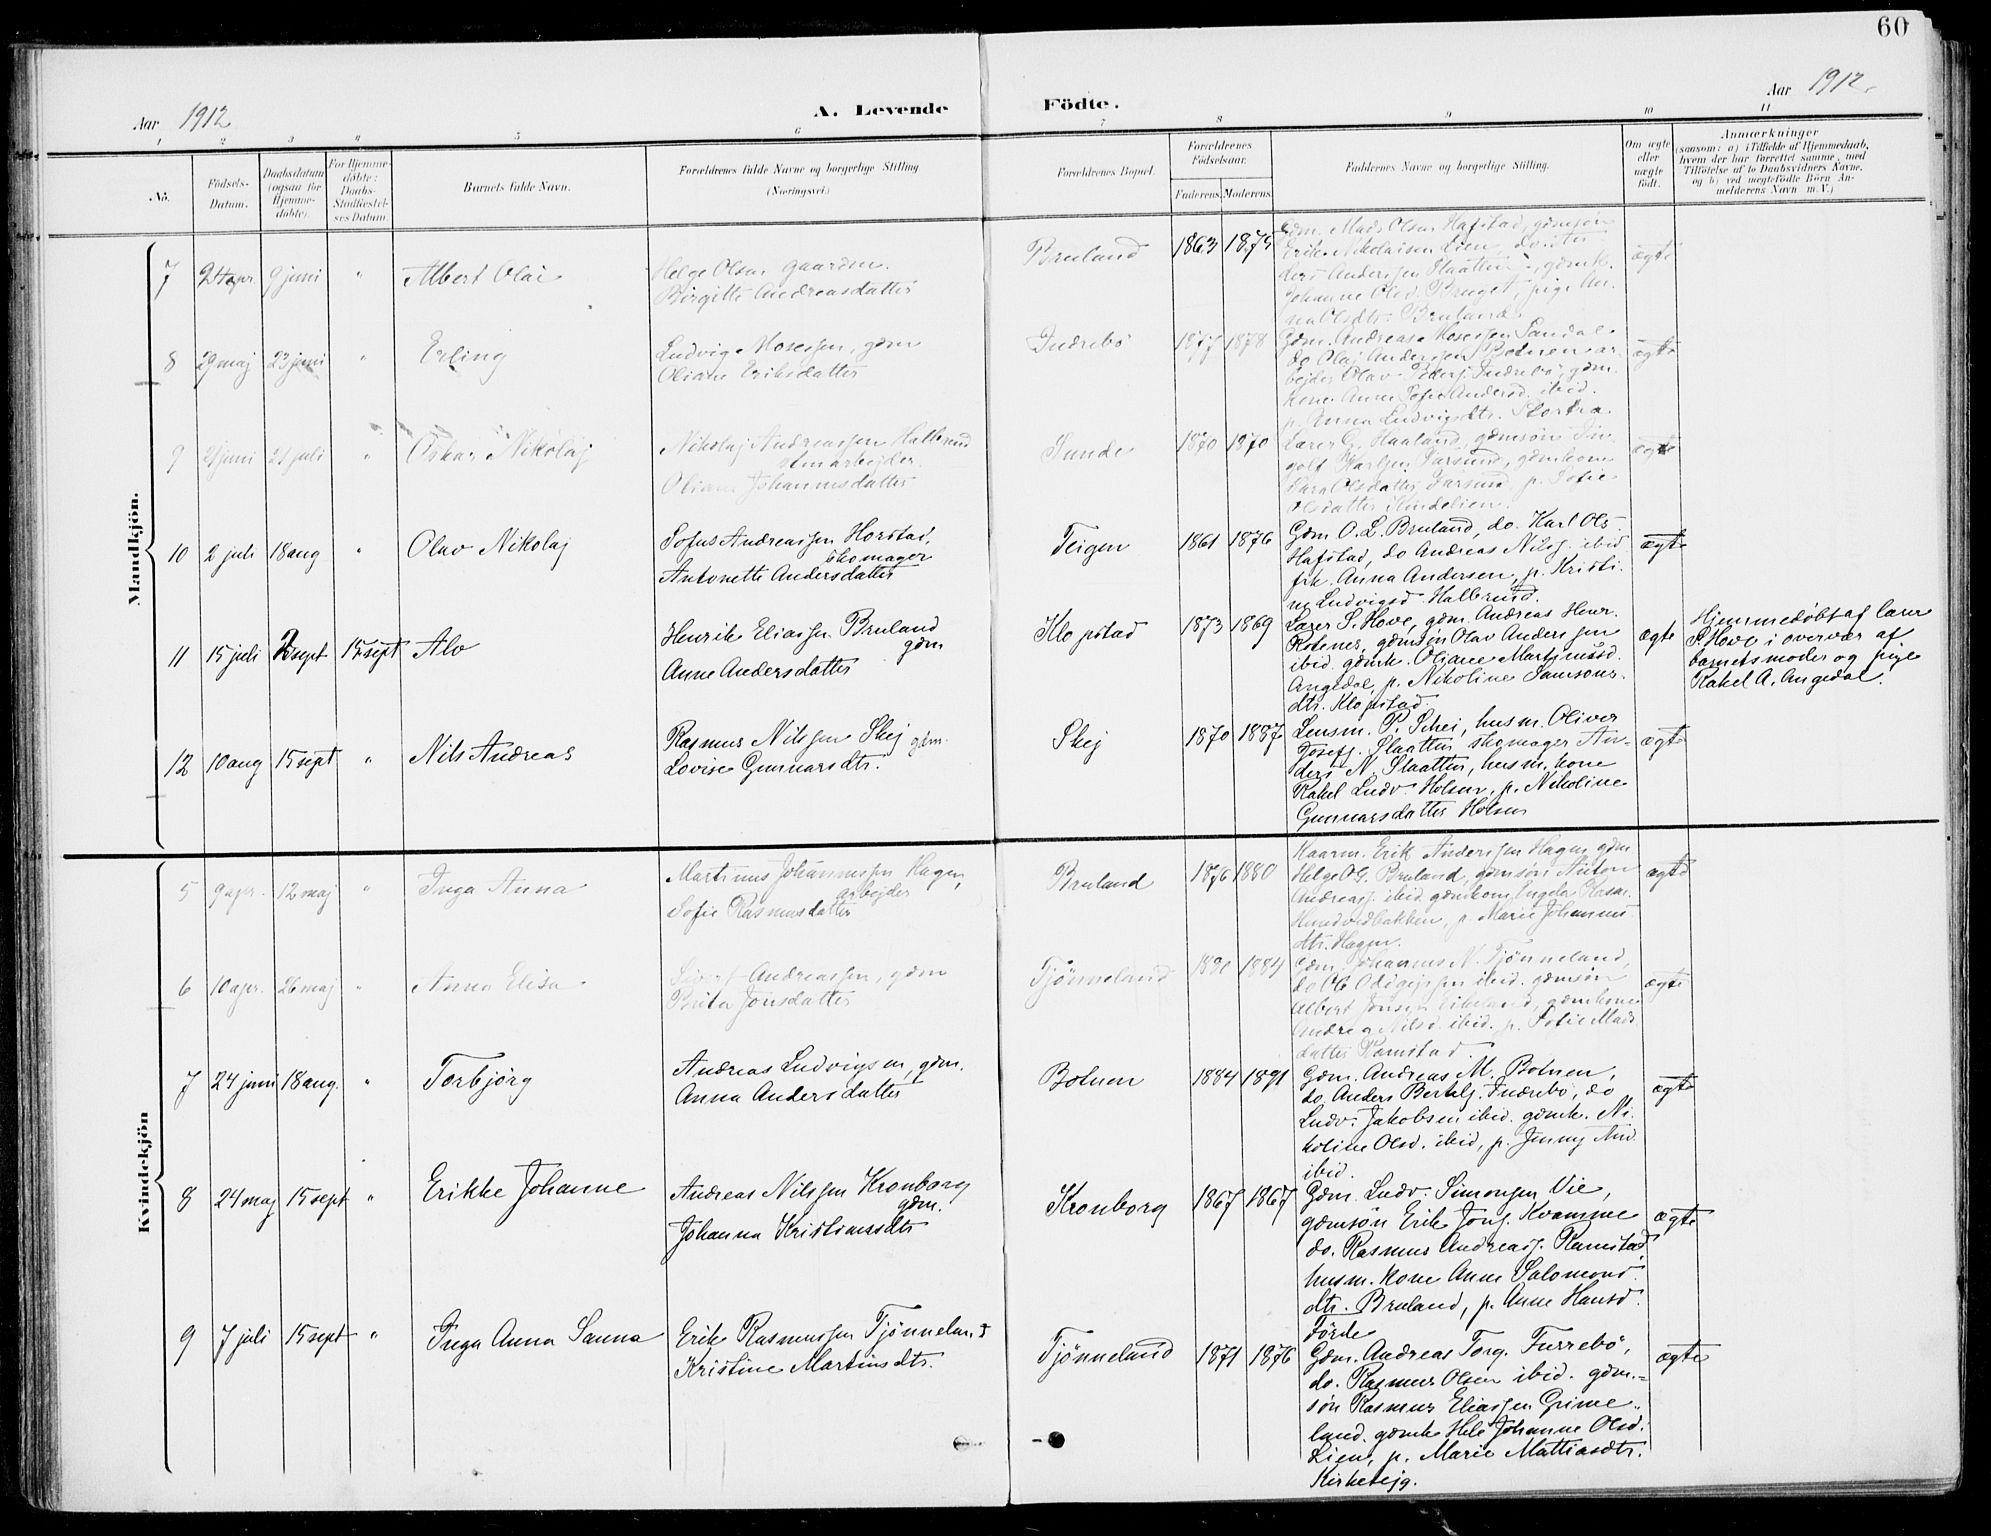 60
Aar 1912
A. Levende
Födte.
Aar 1912.
1 2 3 4 5 6 7 8 9 10 11
No.
Födsels-
Datum.
Daabsdatum
(ogsaa for
Hjemme-
döbte).
For Hjemme-
döbte:
Daabs-
Stadfæstel-
ses Datum.
Barnets fulde Navn.
Forældrenes fulde Navne og borgerlige Stilling
(Næringsvei.)
Forældrenes Bopæl.
Forældrenes
Födselsaar.
Faderens. Moderens.
Faddernes Navne og borgerlige Stilling.
Om ægte
eller
uægte
födt.
Anmærkninger
(saasom: a) i Tilfælde af Hjemmedaab,
hvem der har forrettet samme, med
Tilföielse af to Daabsvidners Navne,
og b) ved uægtefödte Börn An-
melderens Navn m. V.)
Mandkjön.
7 24 apr. 9 juni " Albert Olai
Helge Olsen gaardm.
Birgitte Andreasdatter
Bruland 1863 1875
Gdm. Mads Olsen Hafstad, gdmsøn
Erik Nikolaisen Lien, do
Johanne Olsd. Bruget, pige An-
na Olsdtr. Bruland
ægte
8 29 maj 23 juni " Erling
Ludvig Mosessen, gdm
Oliane Eriksdatter
Indrebø 1877 1878
Gdm. Andreas Mosessen Sandal
do Olaj Anderssen Botnen ar-
bejder Olav Peders. Indrebø, gdm.
kone Anne Sofie Andersd. ibid.
p. Anna Ludvigsdtr.
ægte
9 21 juni 21 juli " Oskar Nikolaj
Nikolaj Andreassen Halbrend
Oliane Johannesdatter
Sunde 1870 1870
Lærer G. Haaland, gdmsøn In-
golf Karlsen Farsund, gdmkone
Kara Olsdatter Farsund, p. Sofie
Olsdatter
ægte
10 2 juli 18 aug " Olav Nikolaj
Sofus Andreassen Horstad,
skomager
Antonette Andersdatter
Teigen 1861 1876
Gdm O. L. Bruland, do. Karl Ols.
Hafstad, do Andreas Nilss. ibid
frk. Anna Andersen, p. Kristi-
ne Ludvigsd. Halbrend.
ægte
11 15 juli 2 sept 15 sept Alv
Henrik Eliassen Bruland
gdm
Anne Andersdatter
Klopstad 1873 1869
Lærer S. Hove, gdm. Andreas Henr.
Rotenes, gdmsøn Olav Anderssen
ibid. gdmk. Oliane Martinusd.
Angedal, p. Nikoline Samsons-
dtr. Klopstad.
ægte
Hjemmedøbt af lærer
S. Hove i overvær af
barnets moder og pige
Rakel A. Angedal.
12 10 aug 15 sept " Nils Andreas
Rasmus Nilssen Skej gdm.
Lovise Gunnarsdtr.
Skej 1870 1887
Lensm. P. Schei, husm. Oliver
Josefs. Slaatten, skomager An-
ders N. Slaatten, husm. kone
Rakel Ludv. Holsen, p. Nikoline
Gunnarsdatter Holsen
ægte
Kvindekjön
5 9 apr. 12 maj " Inga Anna
Martinus Johannessen Hagen,
arbejder
Sofie Rasmusdatter
Bruland 1876 1880
Kaarm. Erik Anderssen Hagen gdm
Helge O. Bruland, gdmsøn Anton
Andreass. ibid. gdmkone Engla Rasm.
Hundvedbakken, p. Marie Johannes-
dtr. Hagen.
ægte
6 10 apr. 26 maj " Anna Elisa
Sivert Andreassen, gdm
Brita Jonsdatter
Tjønneland 1880 1884
Gdm. Johannes N. Tjønneland,
do Ole ibid. gdmsøn
Albert Jonsen Eikeland, gdmkone
Andrea Nilsd. ibid. p. Sofie Mads-
datter Ramstad
ægte
7 24 juni 18 aug. " Torbjørg
Andreas Ludvigsen, gdm.
Anna Andersdatter
Botnen 1884 1891
Gdm. Andreas M. Botnen,
do. Anders Bertels. Indrebø, do
Ludv. Jakobsen ibid. gdmk. Ni-
koline Olsd. ibid, p. Jenny And.
ibid.
ægte
8 24 maj 15 sept " Erikke Johanne
Andreas Nilssen Kronborg
gdm.
Johanna Kristiansdtr
Kronborg 1867 1867
Gdm. Ludv. Simonsen Vie,
gdmsøn Erik Jons. Kvamme
do. Rasmus Andreass. Ramstad,
husm. kone Anne Salomons-
dtr. Bruland, p. Anne Hansd.
Førde
ægte
9 7 juli 15 sept " Inga Anna Sanna
Erik Rasmussen Tjønneland
Kristine Martinsdtr.
Tjønneland 1871 1876
Gdm. Andreas Torg. Furrebø,
do. Rasmus Olsen ibid. gdm.-
søn Rasmus Eliassen Grime-
land. gdmk. Hele Johanne Olsd.
Lien, p. Marie Mattiasdtr.
Kirketejg.
ægte